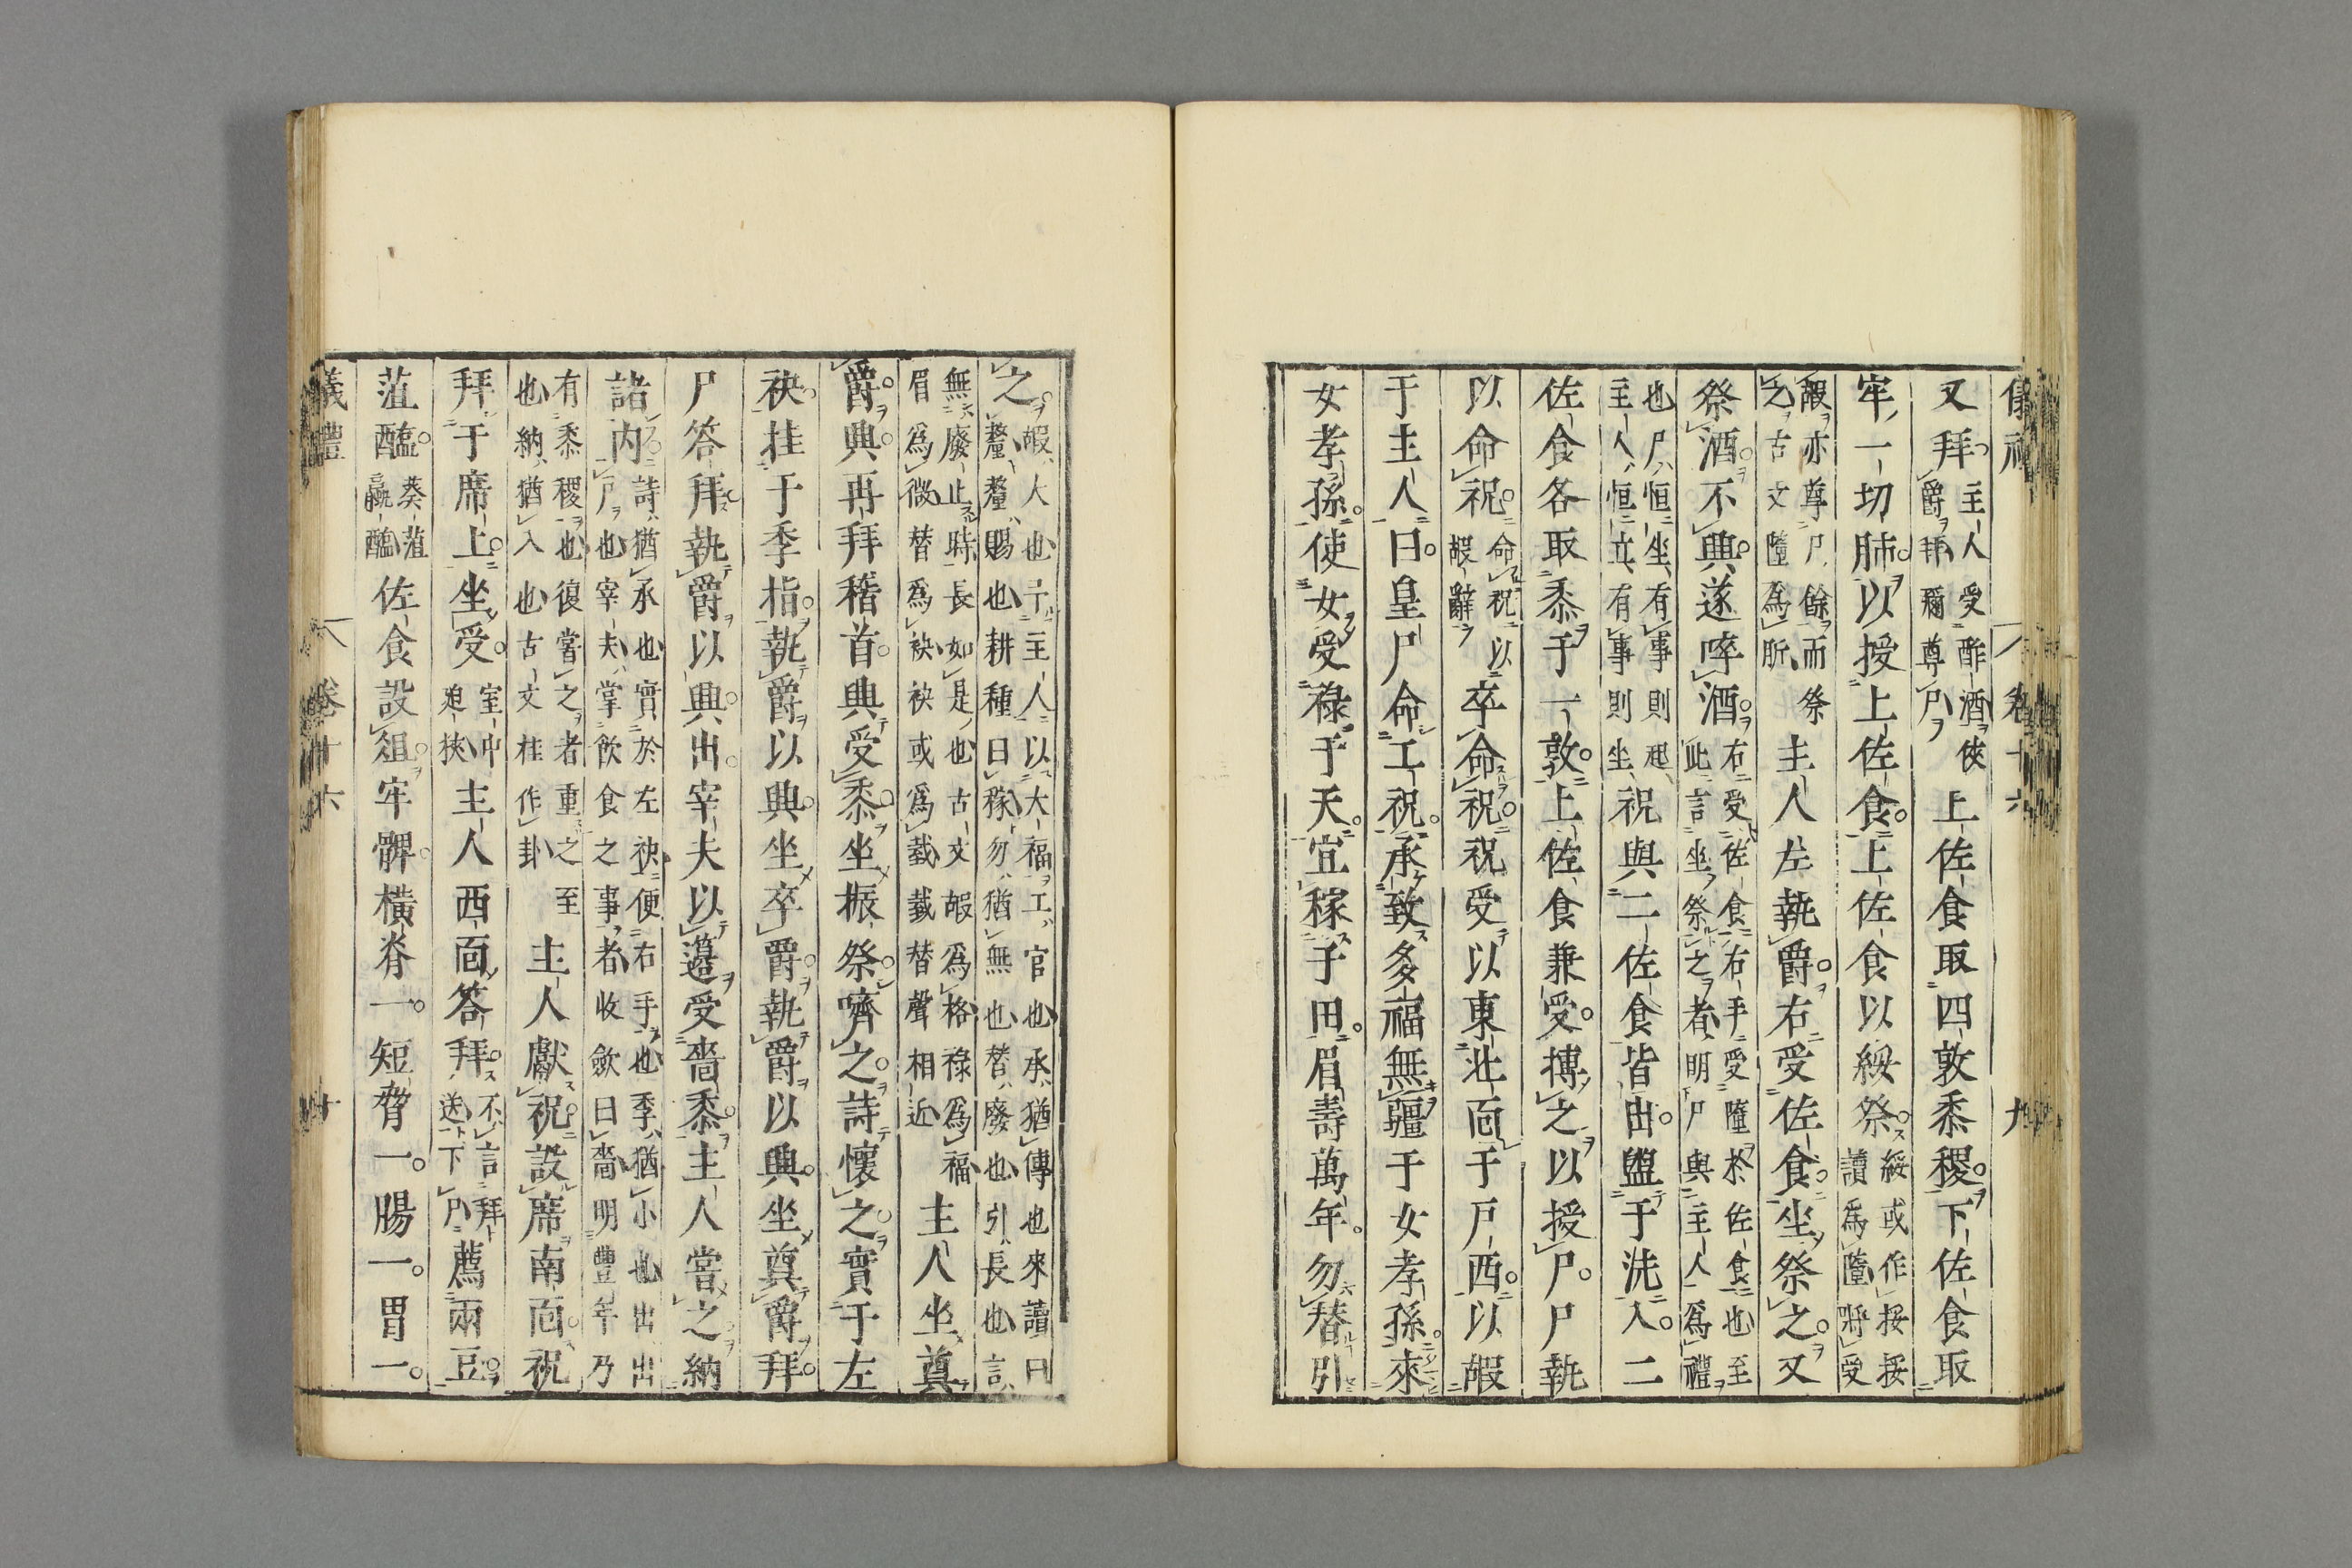 儀禮 卷十六 九
又拜主人受酢酒俠
爵拜彌尊尸
上佐食取四敦黍稷下佐食取
牢一切肺以授上佐食上佐食以綏祭綏或作挼挼
讀爲墮將受
嘏亦尊尸餘而祭
之古文墮爲肵
主人左執爵右受佐食坐祭之又
祭酒不興遂啐酒右受佐食右手受墮於佐食也至
此言坐祭之者明尸與主人爲禮
也尸恒坐有事則起
主人恒立有事則坐
祝與二佐食皆出盥于洗入二
佐食各取黍于一敦上佐食兼受摶之以授尸尸執
以命祝命祝以
嘏辭
卒命祝祝受以東北面于戶西以嘏
于主人曰皇尸命工祝承致多福無疆于女孝孫來
女孝孫使女受祿于天宜稼于田眉壽萬年勿替引
之嘏大也予主人以大福工官也承猶傳也來讀曰
釐釐賜也耕種曰稼勿猶無也替廢也引長也言
無廢止時長如是也古文嘏爲格祿爲福
眉爲微替爲袂袂或爲載載替聲相近
主人坐奠
爵興再拜稽首興受黍坐振祭嚌之詩懷之實于左
袂挂于季指執爵以興坐卒爵執爵以興坐奠爵拜
尸答拜執爵以興出宰夫以籩受嗇黍主人嘗之納
諸內詩猶承也實於左袂便右手也季猶小也出出
尸也宰夫掌飲食之事者收斂曰嗇明豐年乃
有黍稷也復嘗之者重之至
也納猶入也古文挂作卦
主人獻祝設席南面祝
拜于席上坐受室中
迫狹
主人西面答拜不言拜
送下尸
薦兩豆
菹醢葵菹
蠃醢
佐食設俎牢髀橫脊一短脅一腸一胃一
儀禮 卷十六 十